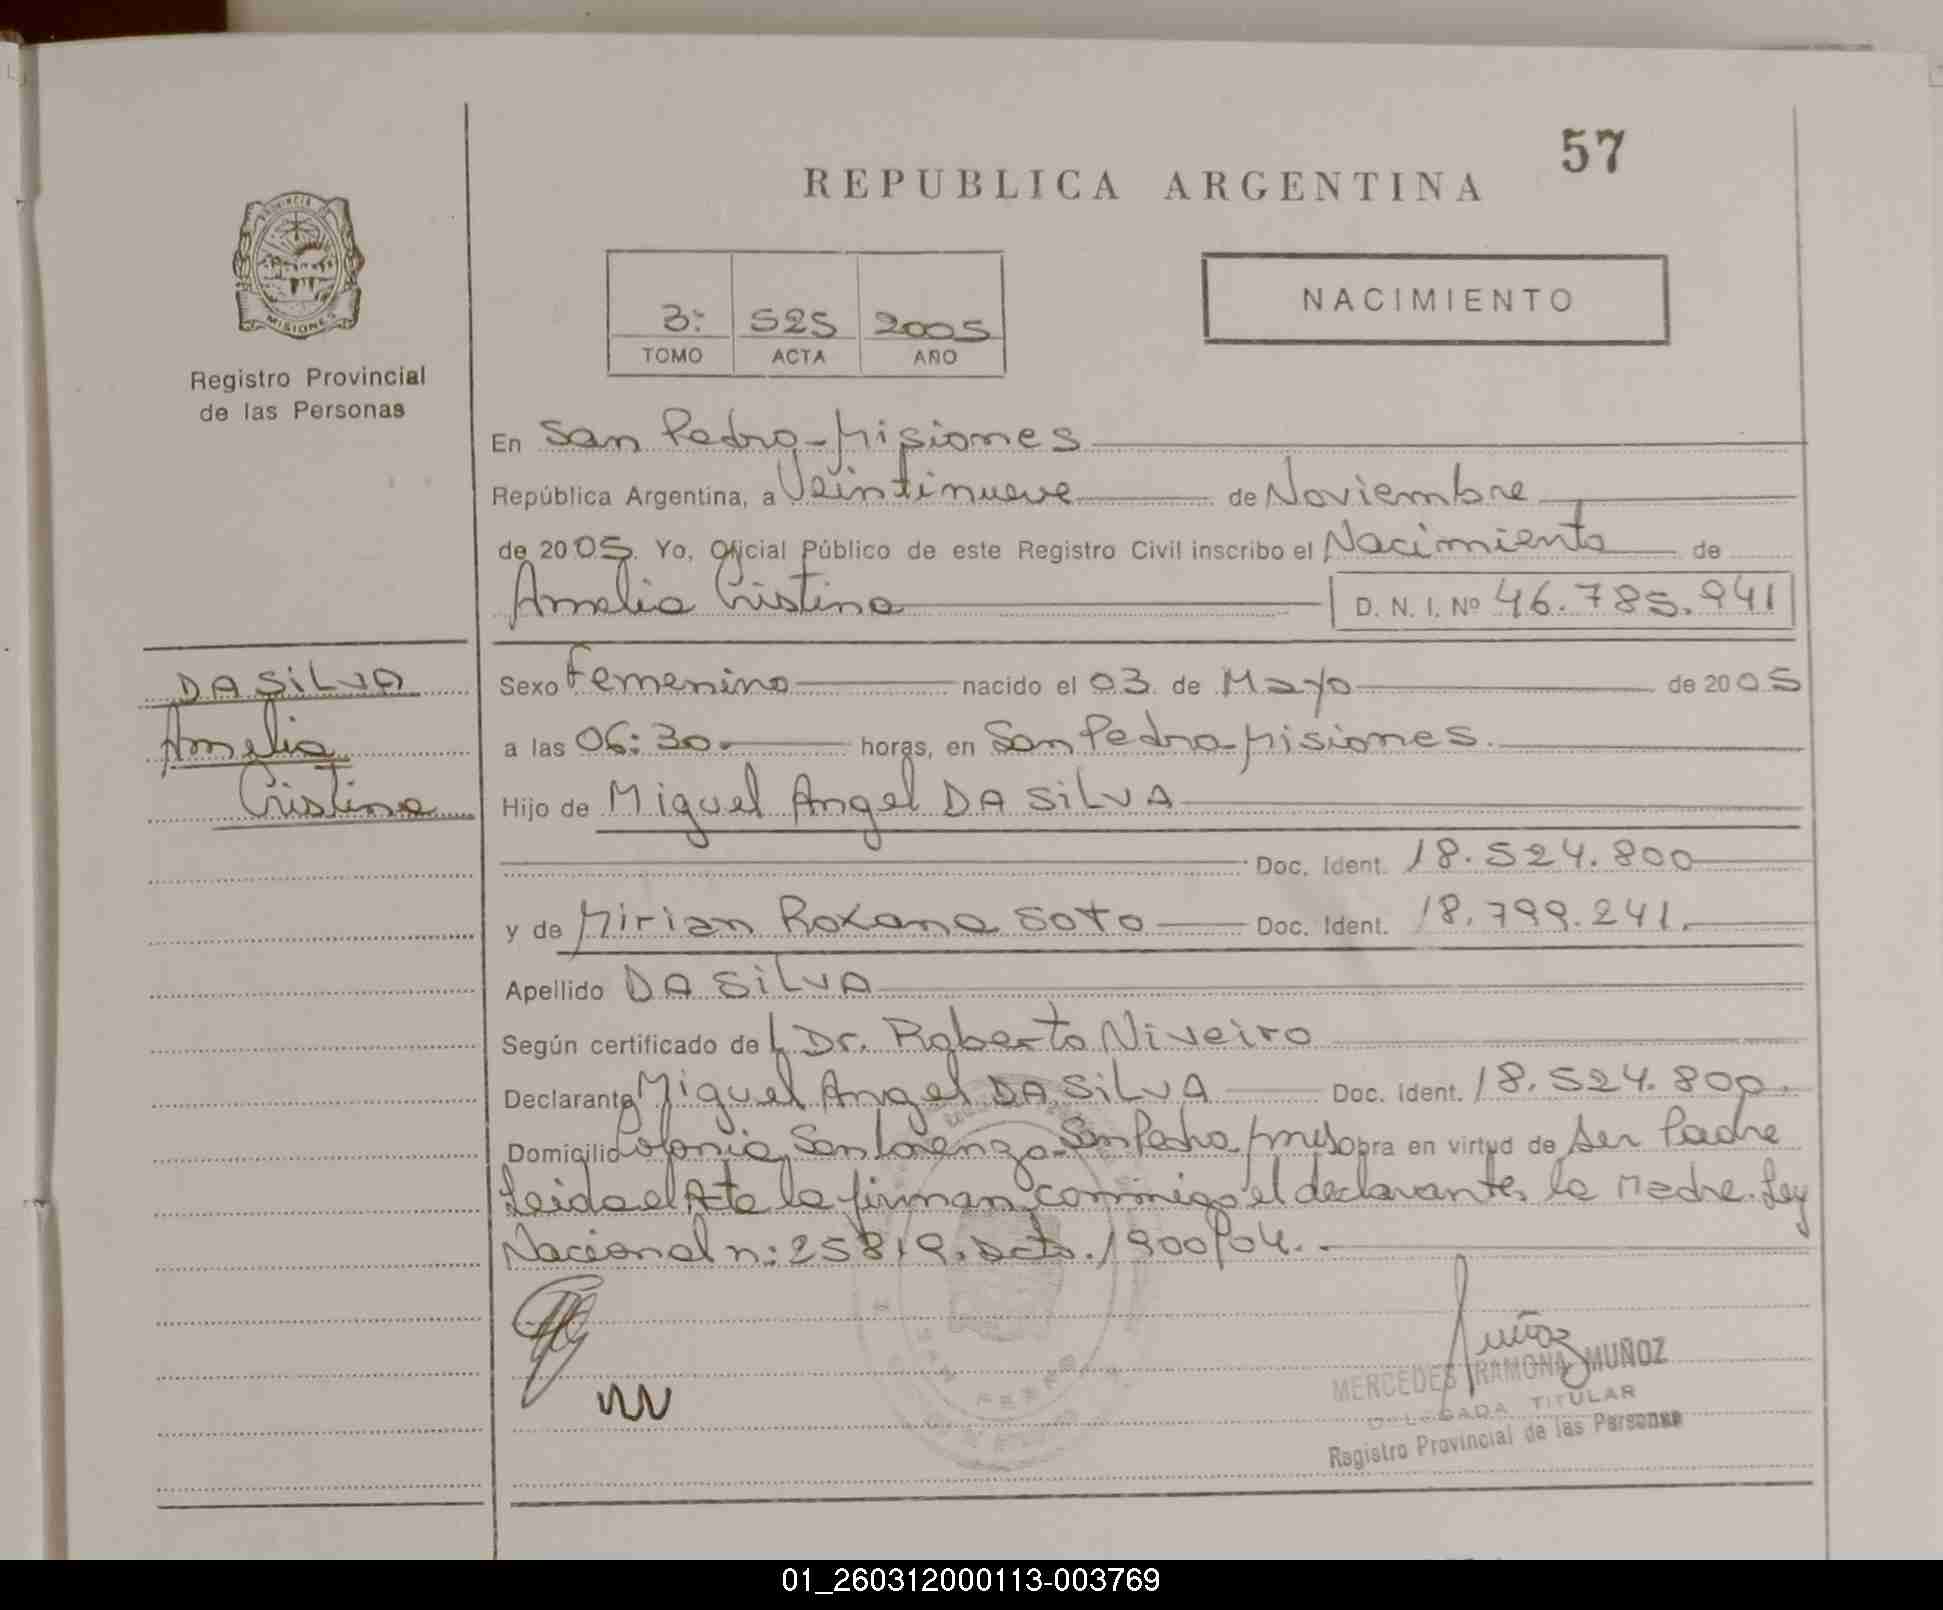 57
REPUBLICA ARGENTINA
PROVINCIA
MISIONES
Registro Provincial
de las Personas
3: 525 2005
TOMO ACTA AÑO
NACIMIENTO
En San Pedro-Misiones
República Argentina, a Veintinueve de Noviembre
de 2005. Yo, Oficial Público de este Registro Civil inscribo el Nacimiento de
Amelia Cristina D. N. I. Nº 46.785.941
DA SiLVA
Amelia
Cristina
Sexo Femenino nacido el 03 de Mayo de 2005
a las 06:30. horas, en San Pedro-Misiones.
Hijo de Miguel Angel DA SiLVA
Doc. Ident. 18.524.800
y de Mirian Roxana Soto Doc. Ident. 18.799.241.
Apellido DA SiLVA
Según certificado del Dr. Roberto Niveiro
Declarante Miguel Angel DA SiLVA Doc. Ident. 18.524.800.
Domicilio Colonia San Lorenzo-San Pedro, Mnes obra en virtud de ser Padre
Leida el Acta la firman conmigo el declarante, la Madre. Ley
Nacional n: 25819. Dcto. 1900/04.
Muñoz
MERCEDES RAMONA MUÑOZ
DELEGADA TITULAR
Registro Provincial de las Personas
01_260312000113-003769